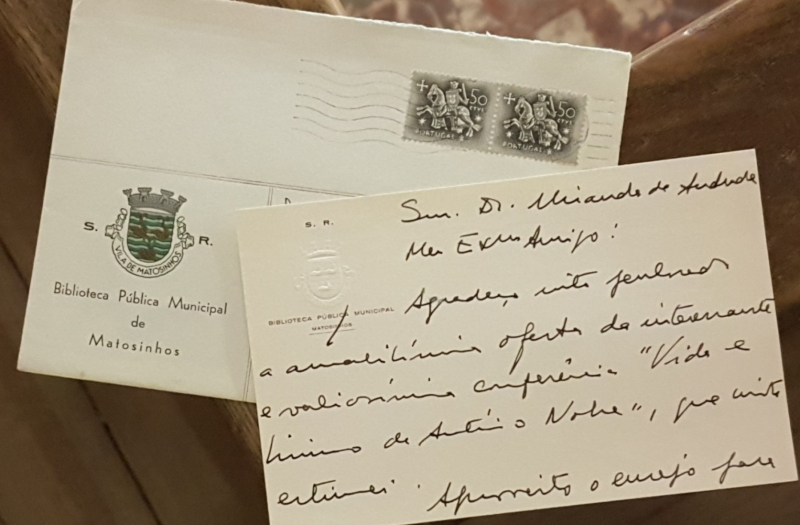 50
CTVS
PORTUGAL
50
CTVS
PORTUGAL
S. R.
VILA DE MATOSINHOS
Biblioteca Pública Municipal
de
Matosinhos
S. R.
BIBLIOTECA PÚBLICA MUNICIPAL
MATOSINHOS
Snr. Dr. Miranda de Andrade
Meu Exmo Amigo!
Agradeço muito penhorado
a amabilíssima oferta da interessante
e valiosíssima conferência "Vida e
lirismo de António Nobre", que muito
estimei. Aproveito o ensejo para